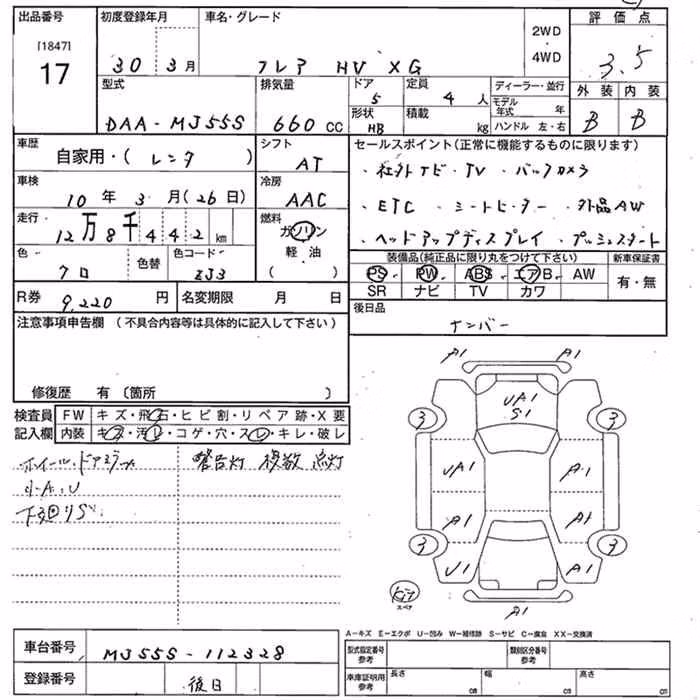 出品番号 初度登録年月 車名・グレード 評価点
[1847]
17 30 3月 フレア HV XG 2WD・4WD 3.5
型式 排気量 ドア 定員 ディーラー・並行 外装 内装
5 4人 モデル年式 年
DAA-MJ55S 660cc 形状 積載 ハンドル 左・右 B B
HB kg
車歴 シフト セールスポイント(正常に機能するものに限ります)
自家用・(レンタ) AT ・社外ナビ・TV ・バックカメラ
車検 冷房
10年3月(26日) AAC ・ETC ・シートヒーター ・外品AW
走行 燃料
12万8千442km ガソリン ・ヘッドアップディスプレイ ・プッシュスタート
軽・油 装備品(純正品に限り丸をつけて下さい) 新車保証書
色 色替 色コード ( ) PS PW ABS エアB AW 有・無
クロ ZJ3 SR ナビ TV カワ
R券 9,220円 名変期限 月 日 後日品
注意事項申告欄 (不具合内容等は具体的に記入して下さい) ナンバー
修復歴 有 〔箇所 〕
検査員 FW キズ・飛石・ヒビ割・リペア跡・X要
記入欄 内装 キズ・汚レ・コゲ・穴・スレ・キレ・破レ
ホイール・ドアミラー 警告灯 複数 点灯
小A.U
下回りS
A1 A1
UA1
S1
3 3
UA1 A1
A1 A1
3 3
U1 A1
スペア
A1
A-キズ E-エクボ U-凹み W-補修跡 S-サビ C-腐食 XX-交換済
車台番号 MJ55S-112328 型式指定番号 参考 類別区分番号 参考
登録番号 後日 車庫証明用 参考 長さ cm 幅 cm 高さ cm